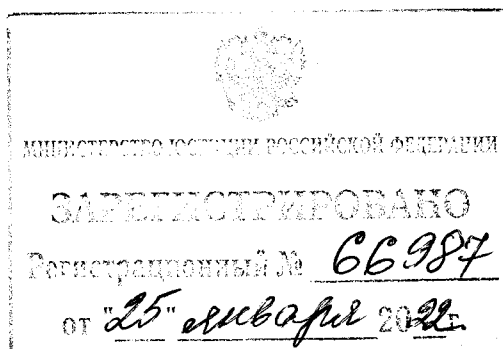 МИНИСТЕРСТВО ЮСТИЦИИ РОССИЙСКОЙ ФЕДЕРАЦИИ
ЗАРЕГИСТРИРОВАНО
Регистрационный № 66987
от "25" января 2022г.